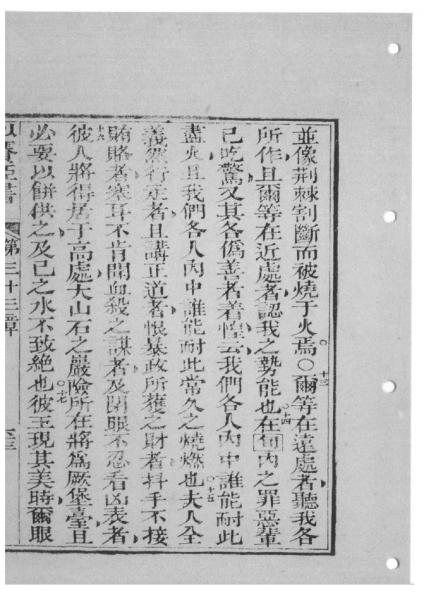 並像荆棘割斷而被燒于火焉○十三爾等在遠處者聽我各
所作且爾等在近處者認我之勢能也○十四在旬內之罪惡輩
已吃驚又其各僞善者着惶云我們各人內中誰能耐此
盡火且我們各人內中誰能耐此當久之燒燃也○十五夫人全
義然行走者且講正道者恨暴政所獲之財者抖手不接
賄賂者塞耳不肯聞血殺之謀者及閉眼不忍看凶表者
十六彼人將得居于高處大山石之嚴險所在將爲厥堡臺且
必要以餅供之及己之水不致絶也○十七彼王現其美時爾眼
書 第三十三章